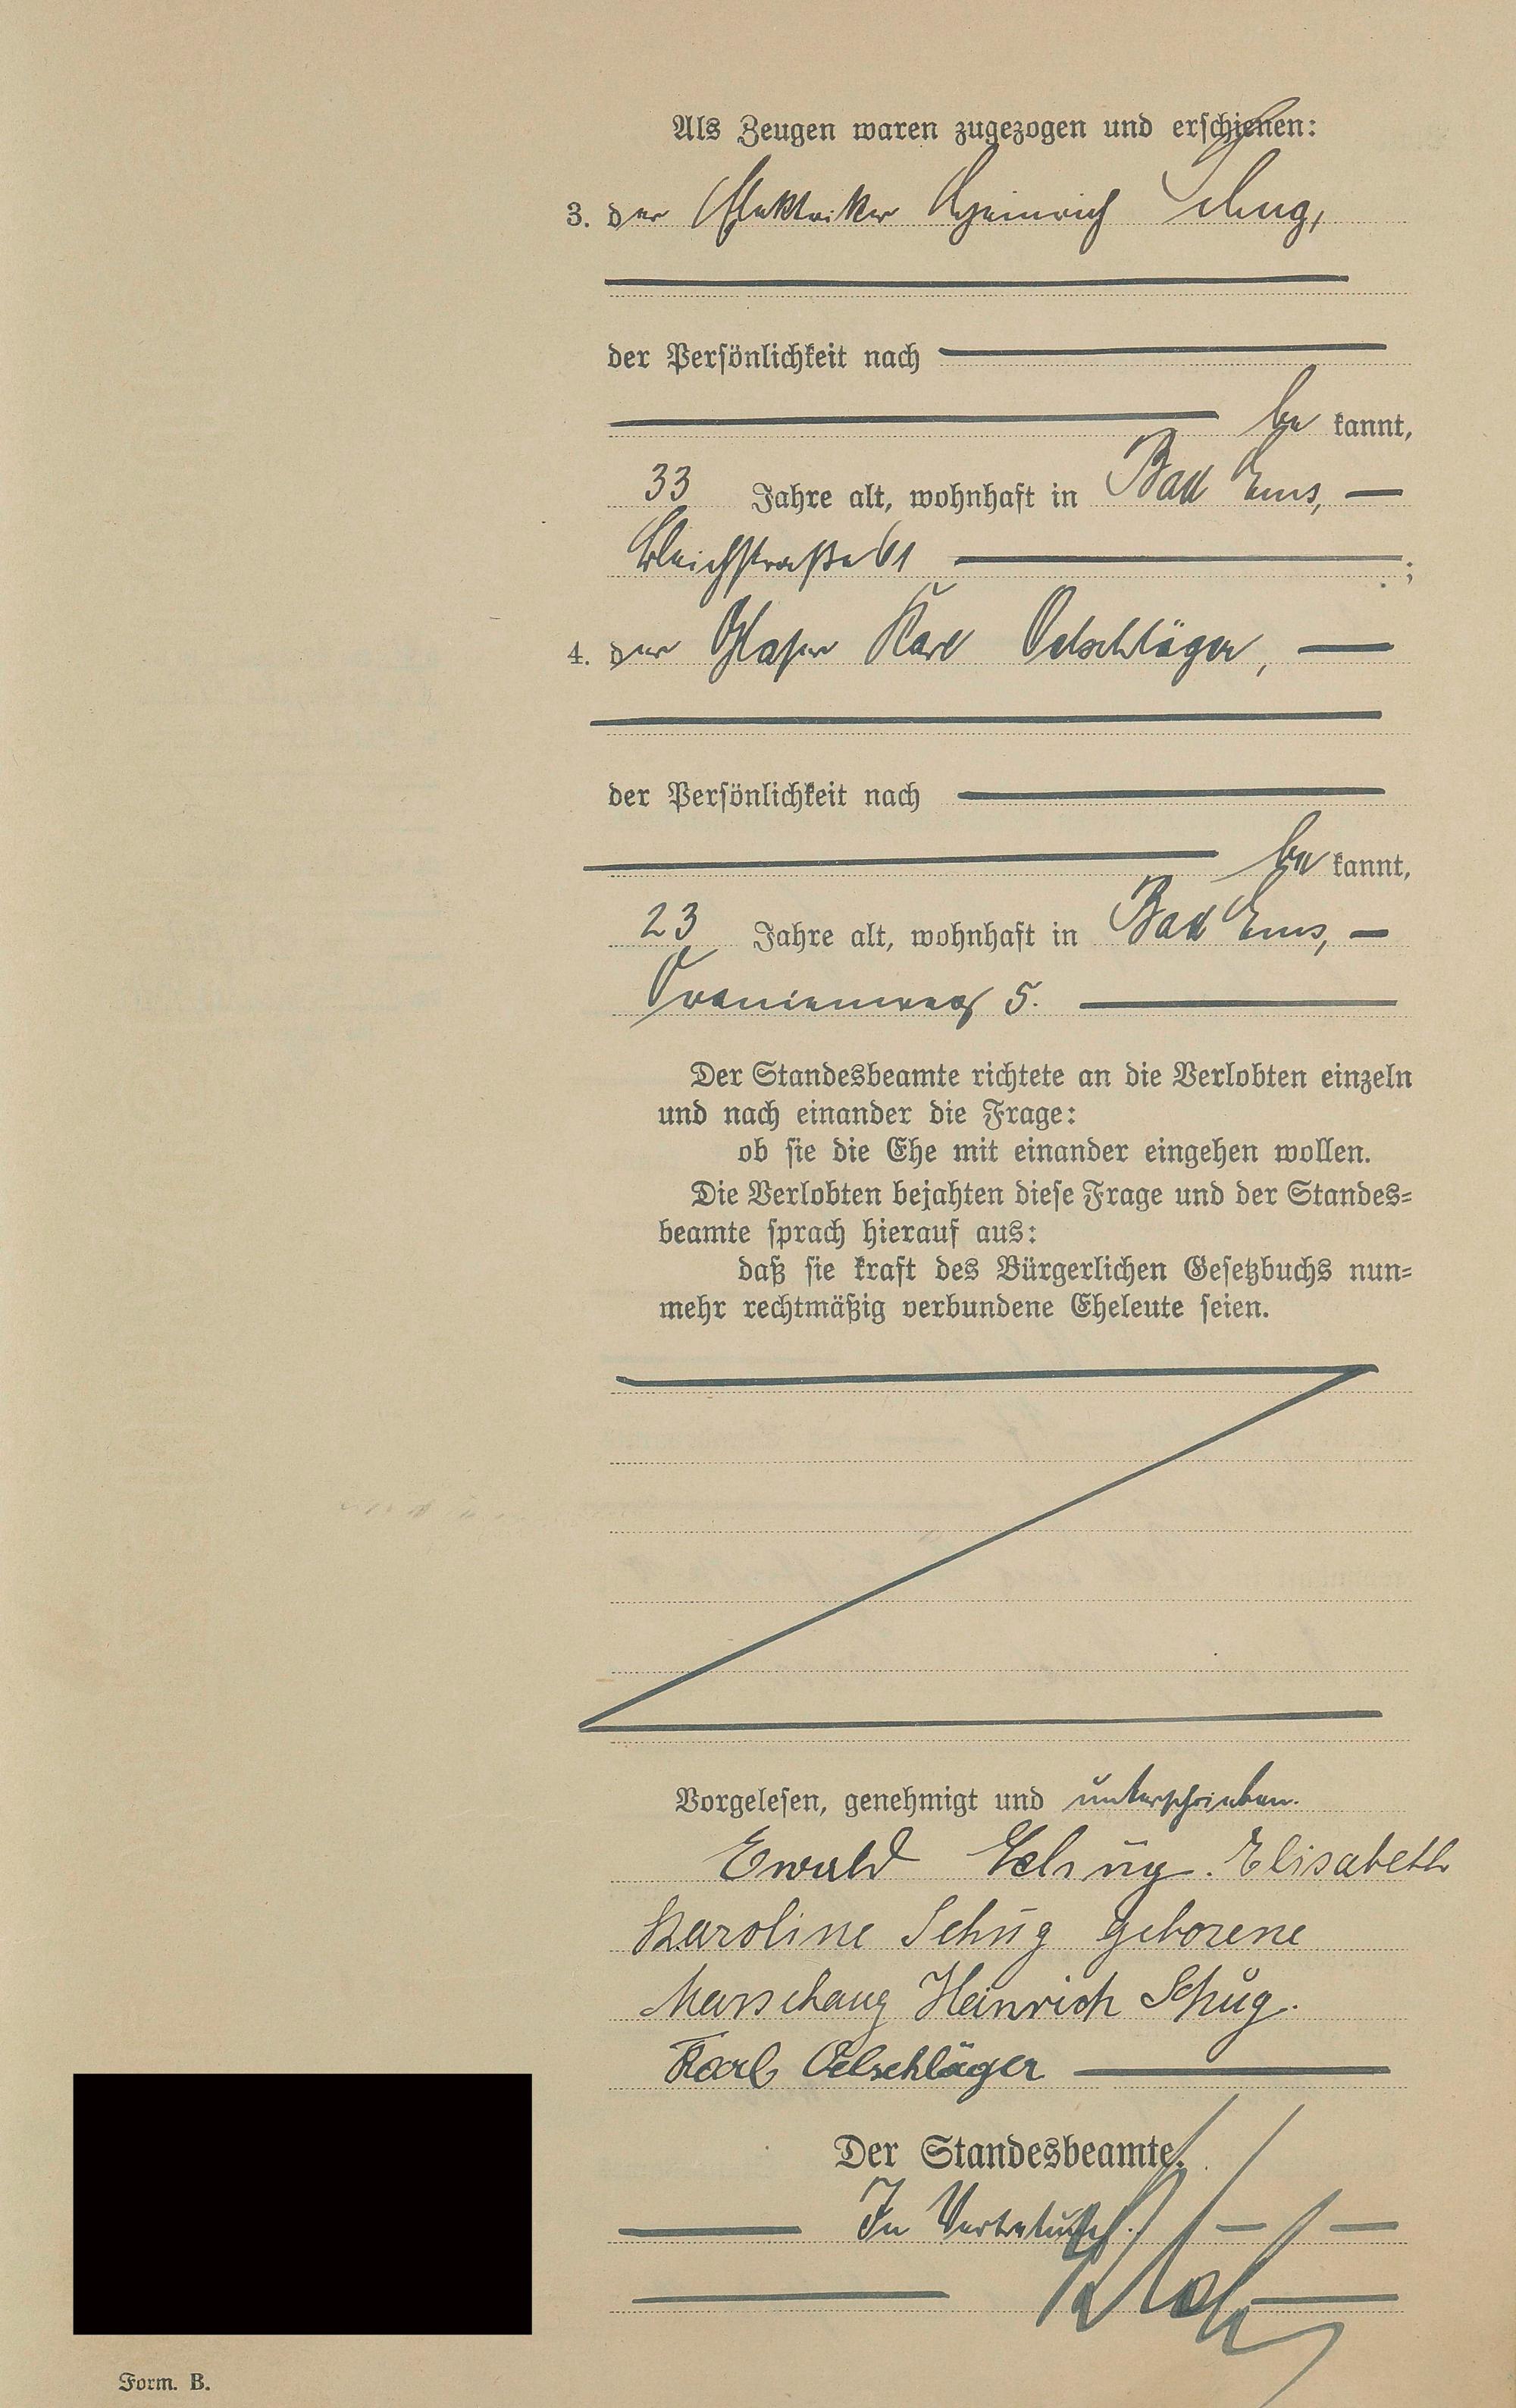 Als Zeugen waren zugezogen und erschienen:
3. der Elektriker Heinrich Schug,
der Persönlichkeit nach
be kannt,
33 Jahre alt, wohnhaft in Bad Ems,
Bleichstraße 61 ;
4. der Glaser Karl Oelschläger,
der Persönlichkeit nach
be kannt,
23 Jahre alt, wohnhaft in Bad Ems,
Oranienweg 5.
Der Standesbeamte richtete an die Verlobten einzeln
und nach einander die Frage:
ob sie die Ehe mit einander eingehen wollen.
Die Verlobten bejahten diese Frage und der Standes-
beamte sprach hierauf aus:
daß sie kraft des Bürgerlichen Gesetzbuchs nun-
mehr rechtmäßig verbundene Eheleute seien.
Vorgelesen, genehmigt und unterschrieben.
Ewald Schug. Elisabeth
Karoline Schug geborene
Marschang Heinrich Schug.
Karl Oelschläger
Der Standesbeamte.
In Vertretung.
Form. B.